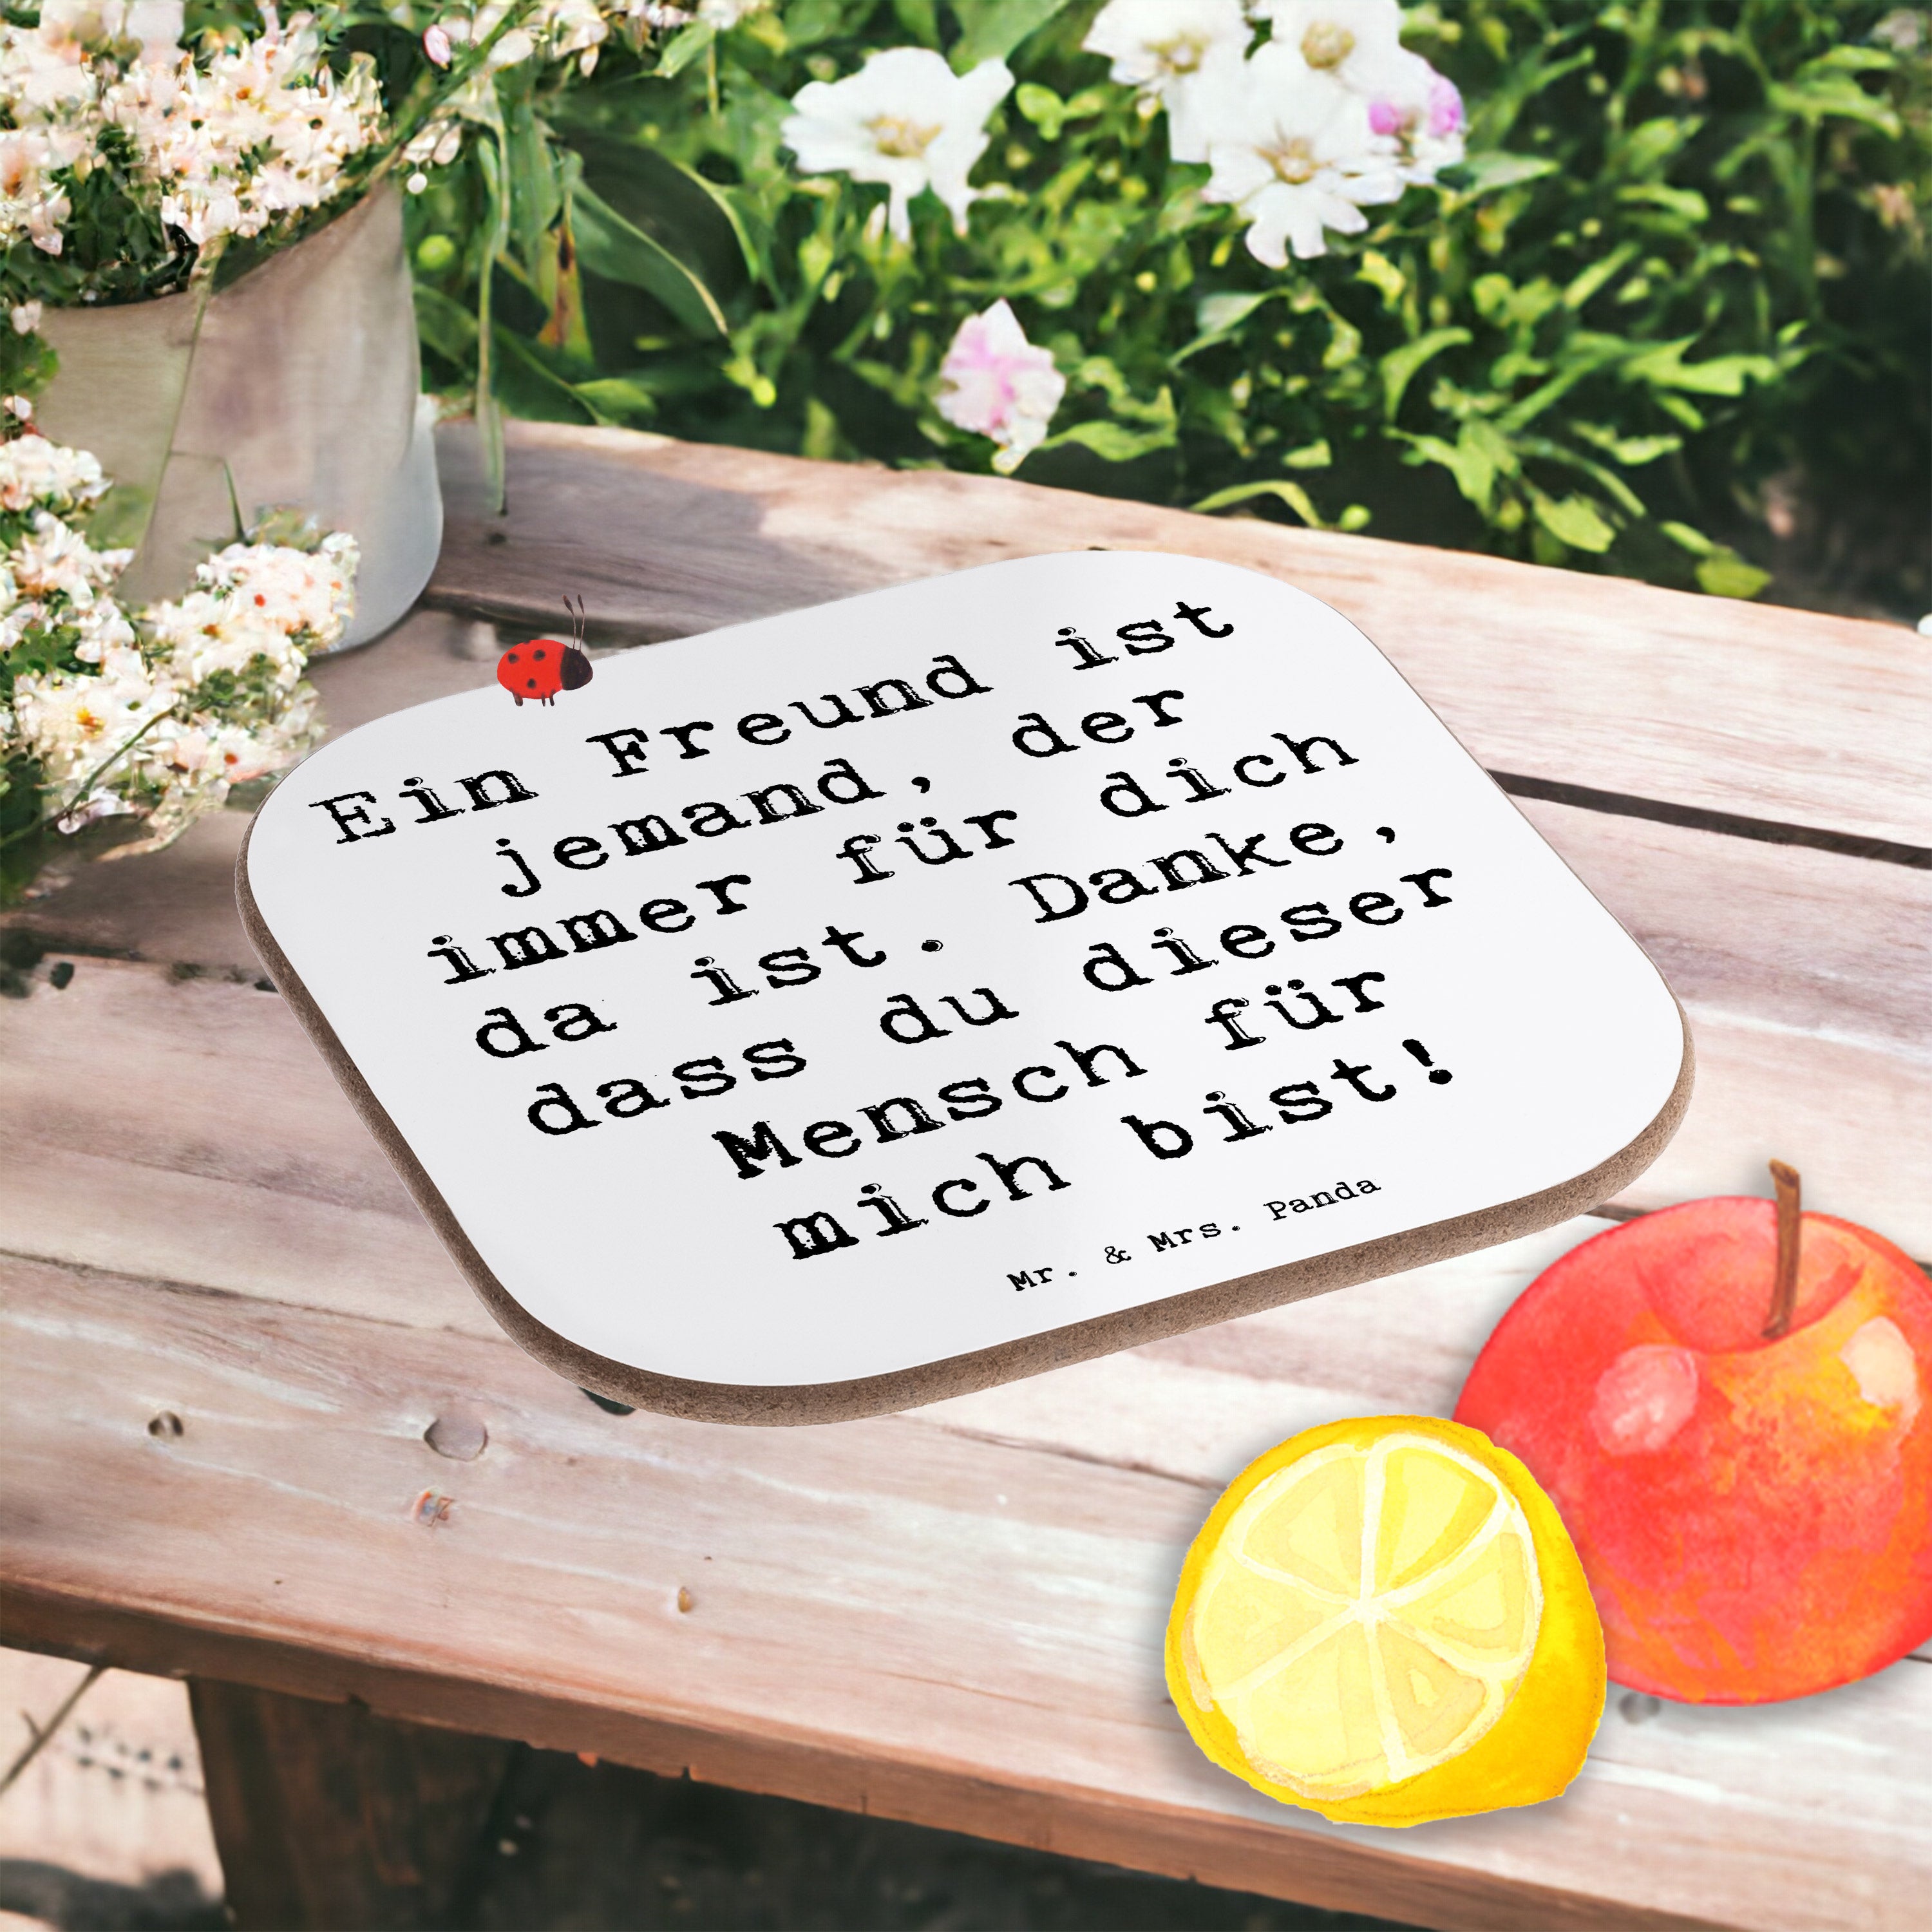 Ein Freund ist
jemand, der
immer für dich
da ist. Danke,
dass du dieser
Mensch für
mich bist!
Mr. & Mrs. Panda